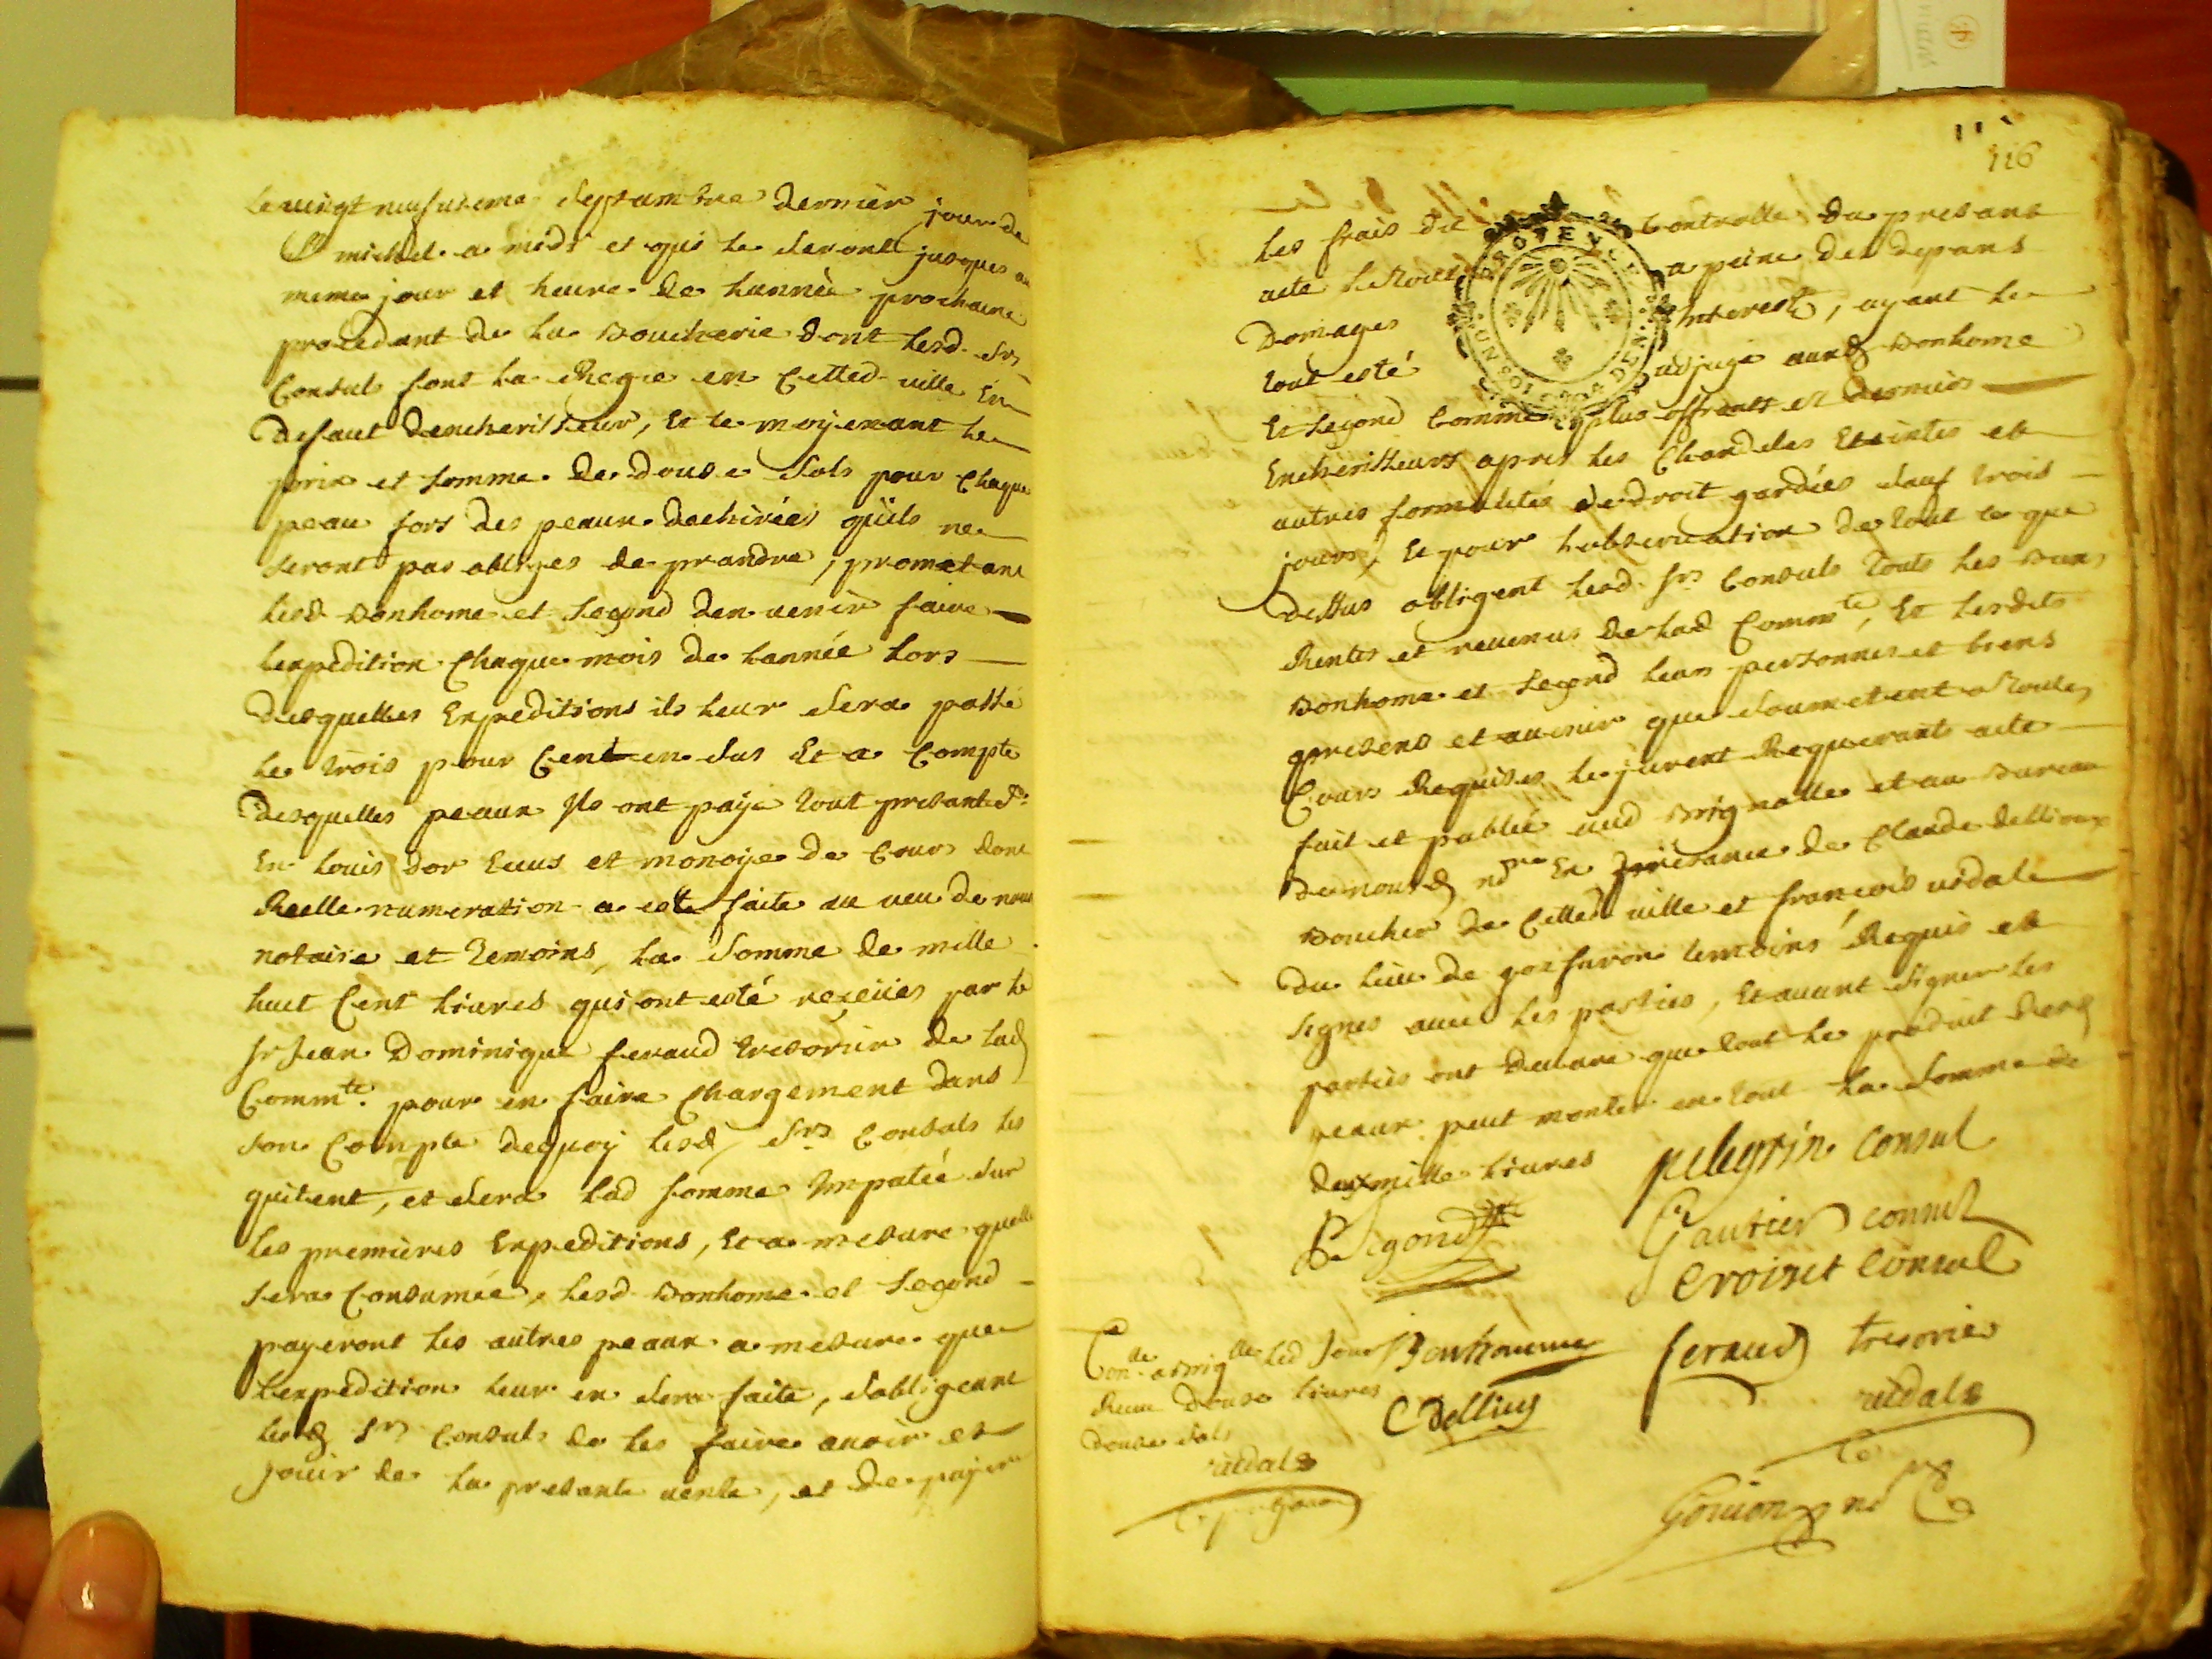 Le vingt neufvieme septambre dernier jour de
St michel a midy et qui le seront jusques au
meme jour et heure de lannée prochaine
procedant de la Boucherie dont lesd. srs
Consuls font la Regie en Cetted. ville En
defaut dencherisseur, Et te moyenant le
prix et somme de douse sols pour Chaque
peau fors des peaux dechirées quils ne
seront pas obliges de prandre, prometant
lesd Bonhome et Segond den venir faire
lexpedition Chaque mois de lannée lors
desquelles Expeditions ils leur sera passé
le trois pour Cent en sus Et a Compte
desquelles peaux Ils ont payé tout presantemt.
En louis dor Ecus et monoye de Cours dont
Reelle numeration a esté faite au veu de nous
notaire et temoins, la somme de mille
huit Cent livres qui ont esté reçeües par le
sr Jean Dominique feraud tresorier de lad
Commté. pour en faire Chargement dans
son Compte dequoy lesd srs Consuls les
quitent, et sera lad somme Imputée sur
les premières Expeditions, Et a mesure quelle
sera Consumée, lesd Bonhome et Segond
payeront les autres peaux a mesure que
lexpedition leur en sera faite, sobligeant
lesd srs Consuls de les faire avoir et
jouir de la presante vente, et de payer
116
les frais du Controlle du presant
acte a peine des depans
Domages Interests, ayant le
tout esté adjugé auxd Bonhome
Et Segond Comme plus offrants et derniers
Encherisseurs apres les Chandeles Eteintes et
autres formalités de droit gardées sauf trois
jours, Et pour lobservation de tout ce que
dessus obligent lesd. srs Consuls touts les Biens
Rentes et revenus de lad Commté, Et lesdits
Bonhome et Segond leurs personnes et biens
presens et avenir que soumetent a toutes
Cours Requises le jurent Requerants acte
fait et publié aud Brignolle et au Bureau
de nousd nore En presance de Claude dellieux
Boucher de Cetted. ville et françois vidale
du lieu de gonfaron temoins Requis et
signes avec les parties, Et avant signer les
parties ont declare que tout le produit desd
peaux peut monter en tout la somme de
deux mille livres pelegrin consul
Segond Gautier consul
Croiset Consul
Conllé a Briglle led jour Bonhaume feraud tresorier
Reçeu douse livres
C Dellieus vidale
douse sols
vidale
Goujon nore
PROVENCE